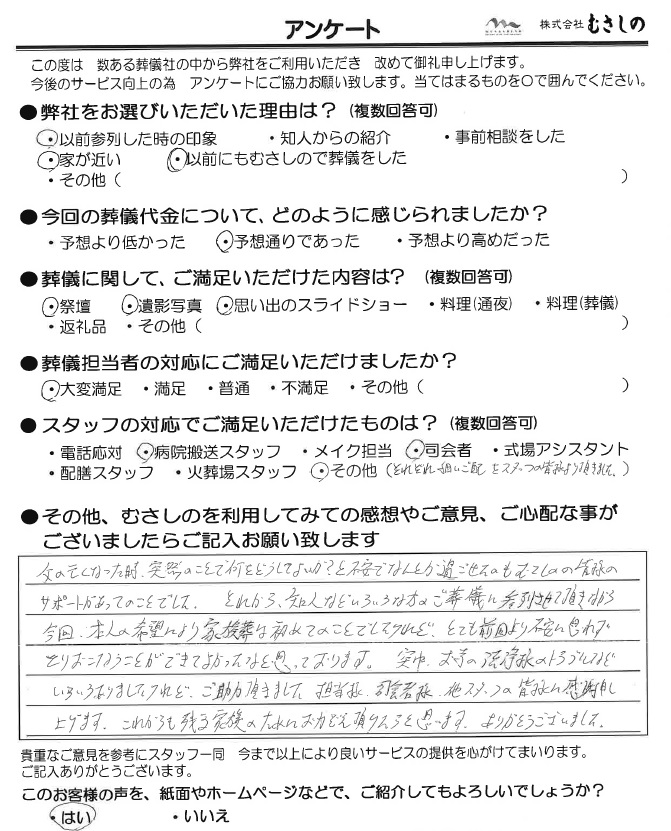 アンケート
株式会社 むさしの
この度は 数ある葬儀社の中から弊社をご利用いただき 改めて御礼申し上げます。
今後のサービス向上の為 アンケートにご協力お願い致します。当てはまるものを○で囲んでください。
●弊社をお選びいただいた理由は？（複数回答可）
・以前参列した時の印象 ・知人からの紹介 ・事前相談をした
・家が近い ・以前にもむさしので葬儀をした
・その他（ ）
●今回の葬儀代金について、どのように感じられましたか？
・予想より低かった ・予想通りであった ・予想より高めだった
●葬儀に関して、ご満足いただけた内容は？（複数回答可）
・祭壇 ・遺影写真 ・思い出のスライドショー ・料理(通夜) ・料理(葬儀)
・返礼品 ・その他（ ）
●葬儀担当者の対応にご満足いただけましたか？
・大変満足 ・満足 ・普通 ・不満足 ・その他（ ）
●スタッフの対応でご満足いただけたものは？（複数回答可）
・電話応対 ・病院搬送スタッフ ・メイク担当 ・司会者 ・式場アシスタント
・配膳スタッフ ・火葬場スタッフ ・その他（それぞれ 心配 をスタッフの皆様より頂きました。）
●その他、むさしのを利用してみての感想やご意見、ご心配な事が
ございましたらご記入お願い致します
父の亡くなった時、突然のことで何をどうしてよいか？と不安でなんとか過ごせたのもむさしのの皆様の
サポートがあってのことでした。 それから、知人などいろいろな方のご葬儀に参列させて頂きながら
今回、本人の希望により家族葬は初めてのことでしたけれど、とても前回より不安に思わず
とりおこなうことができてよかったなと思っております。 実中、お寺の のトラブルなど
いろいろありましたけれど、ご助力頂きました 担当様、司会者様、他スタッフの皆様に感謝申し
上げます。これからも残る家族のためにお力ぞえ頂けたらと思います。ありがとうございました。
貴重なご意見を参考にスタッフ一同 今まで以上により良いサービスの提供を心がけてまいります。
ご記入ありがとうございます。
このお客様の声を、紙面やホームページなどで、ご紹介してもよろしいでしょうか？
・はい ・いいえ